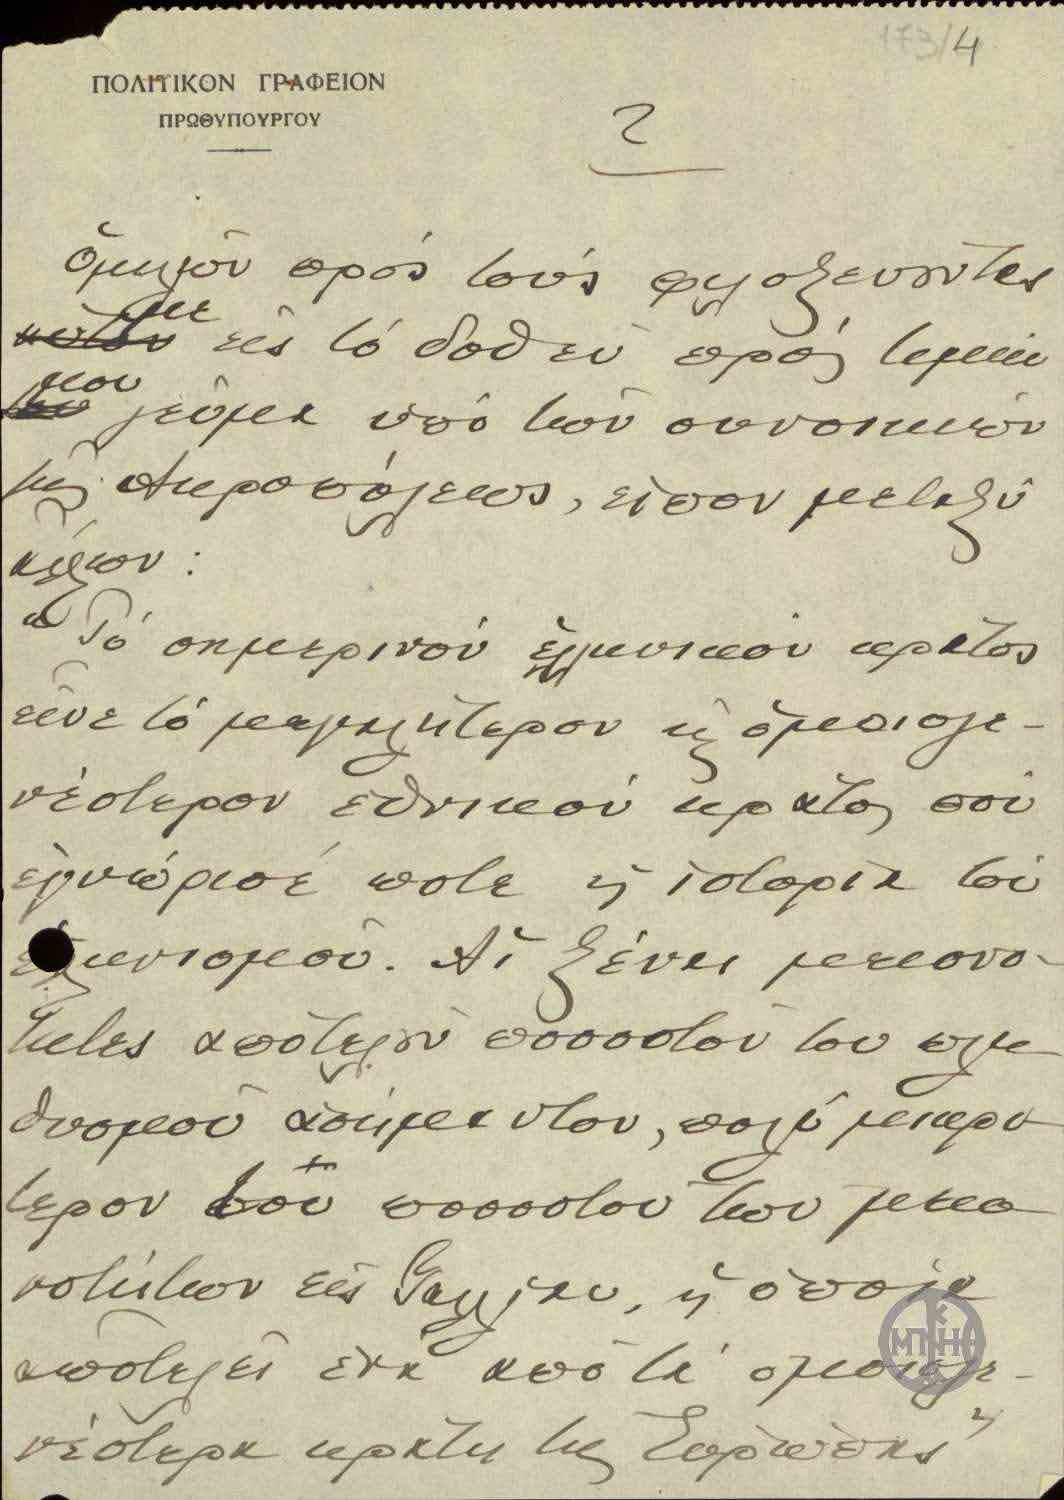 173/4
ΠΟΛΙΤΙΚΟΝ ΓΡΑΦΕΙΟΝ
ΠΡΩΘΥΠΟΥΡΓΟΥ
2
ὁμιλῶν πρός τούς φιλοξενοῦντες
με εἰς τό δοθέν πρός τιμήν
μου γεῦμα ὑπό τῶν συνοικιῶν
τῆς Ἀκροπόλεως, εἶπον μεταξύ
ἄλλων:
"Τό σημερινόν ἑλληνικόν κράτος
εἶνε τό μεγαλείτερον κ ὁμοιογε-
νέστερον ἐθνικόν κράτος πού
ἐγνώρισέ ποτε ἡ ἱστορία τοῦ
ἑλληνισμοῦ. Αἱ ξέναι μειονο-
τητες ἀποτελοῦν ποσοστόν του πλη
θυσμοῦ ἀσήμαντον, πολύ μικρό
τερον τοῦ ποσοστοῦ των μειο
νοτήτων εἰς Γαλλίαν, ἡ ὁποία
ἀποτελεῖ ἕνα ἀπό τά ὁμοιογε-
νέστερα κράτη τῆς Εὐρώπης"
ΜΠΗ